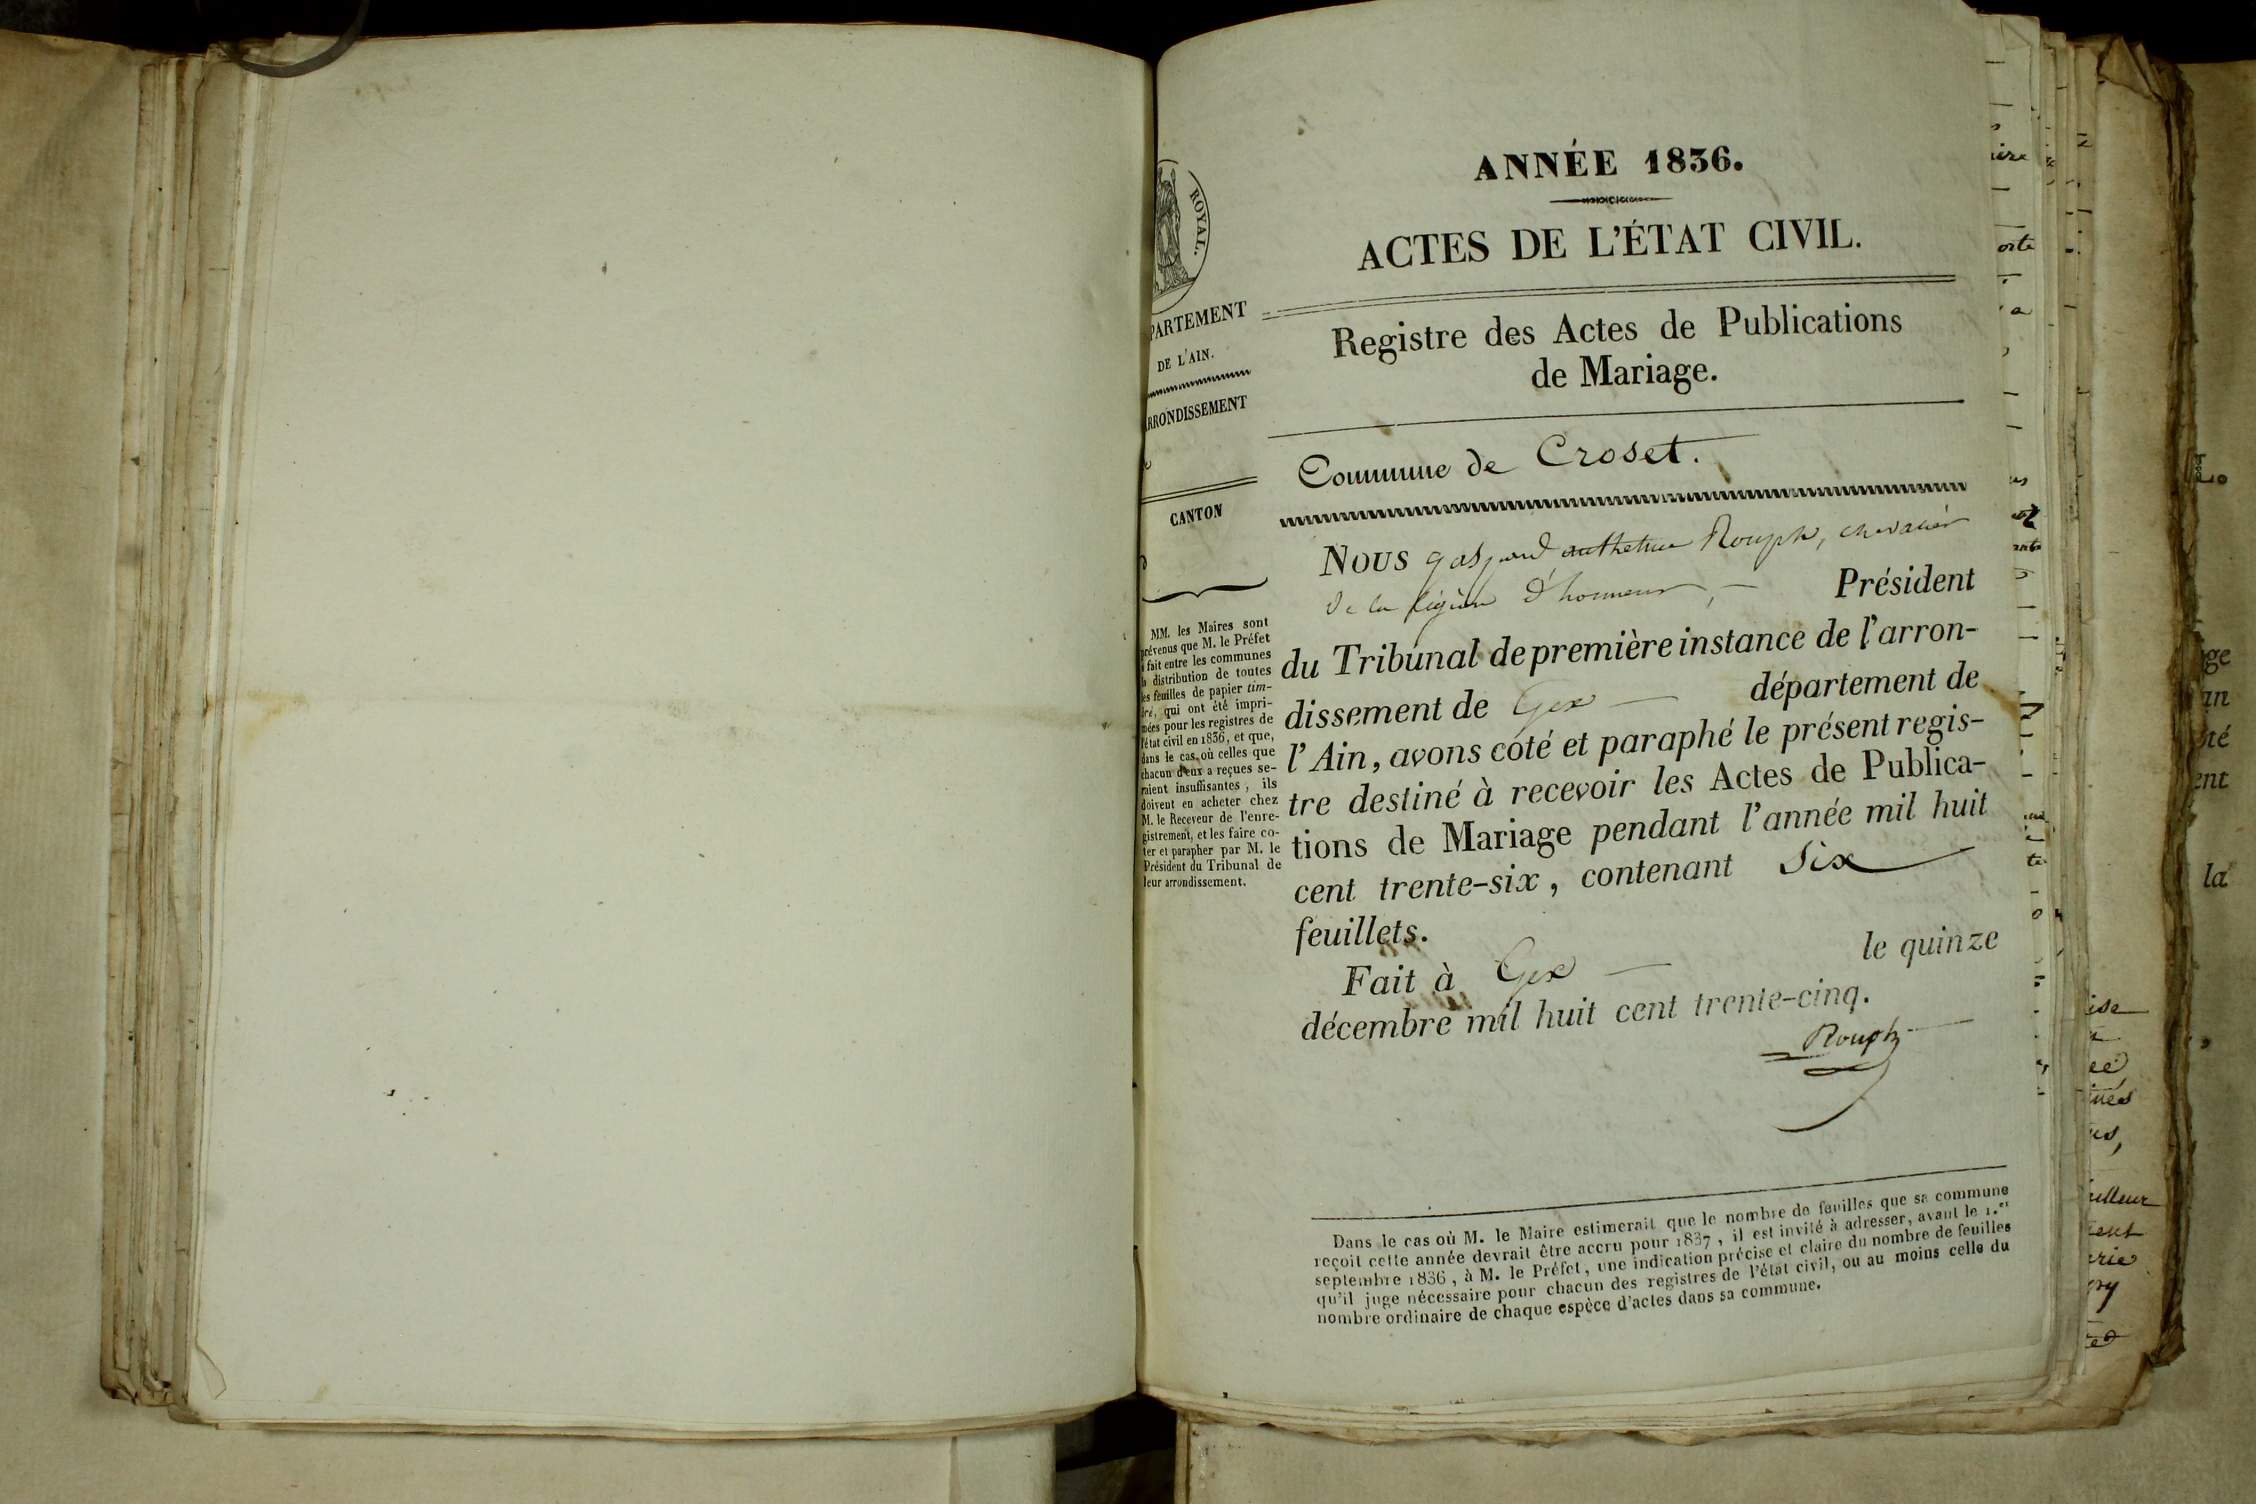 ROYAL.
PARTEMENT
DE L'AIN.
ARRONDISSEMENT
CANTON
MM. les Maires sont
prévenus que M. le Préfet
a fait entre les communes
la distribution de toutes
les feuilles de papier tim-
bré, qui ont été impri-
mées pour les registres de
l'état civil en 1836, et que,
dans le cas où celles que
chacun d'eux a reçues se-
raient insuffisantes, ils
doivent en acheter chez
M. le Receveur de l'enre-
gistrement, et les faire co-
ter et parapher par M. le
Président du Tribunal de
leur arrondissement.
ANNÉE 1836.
ACTES DE L'ÉTAT CIVIL.
Registre des Actes de Publications
de Mariage.
Commune de Croset.
NOUS gaspard anthelme Rouph, chevalier
de la légion d'honneur, Président
du Tribunal de première instance de l'arron-
dissement de Gex département de
l'Ain, avons coté et paraphé le présent regis-
tre destiné à recevoir les Actes de Publica-
tions de Mariage pendant l'année mil huit
cent trente-six, contenant Six
feuillets.
Fait à Gex le quinze
décembre mil huit cent trente-cinq.
Rouph
Dans le cas où M. le Maire estimerait que le nombre de feuilles que sa commune
reçoit cette année devrait être accru pour 1837, il est invité à adresser, avant le 1.er
septembre 1836, à M. le Préfet, une indication précise et claire du nombre de feuilles
qu'il juge nécessaire pour chacun des registres de l'état civil, ou au moins celle du
nombre ordinaire de chaque espèce d'actes dans sa commune.